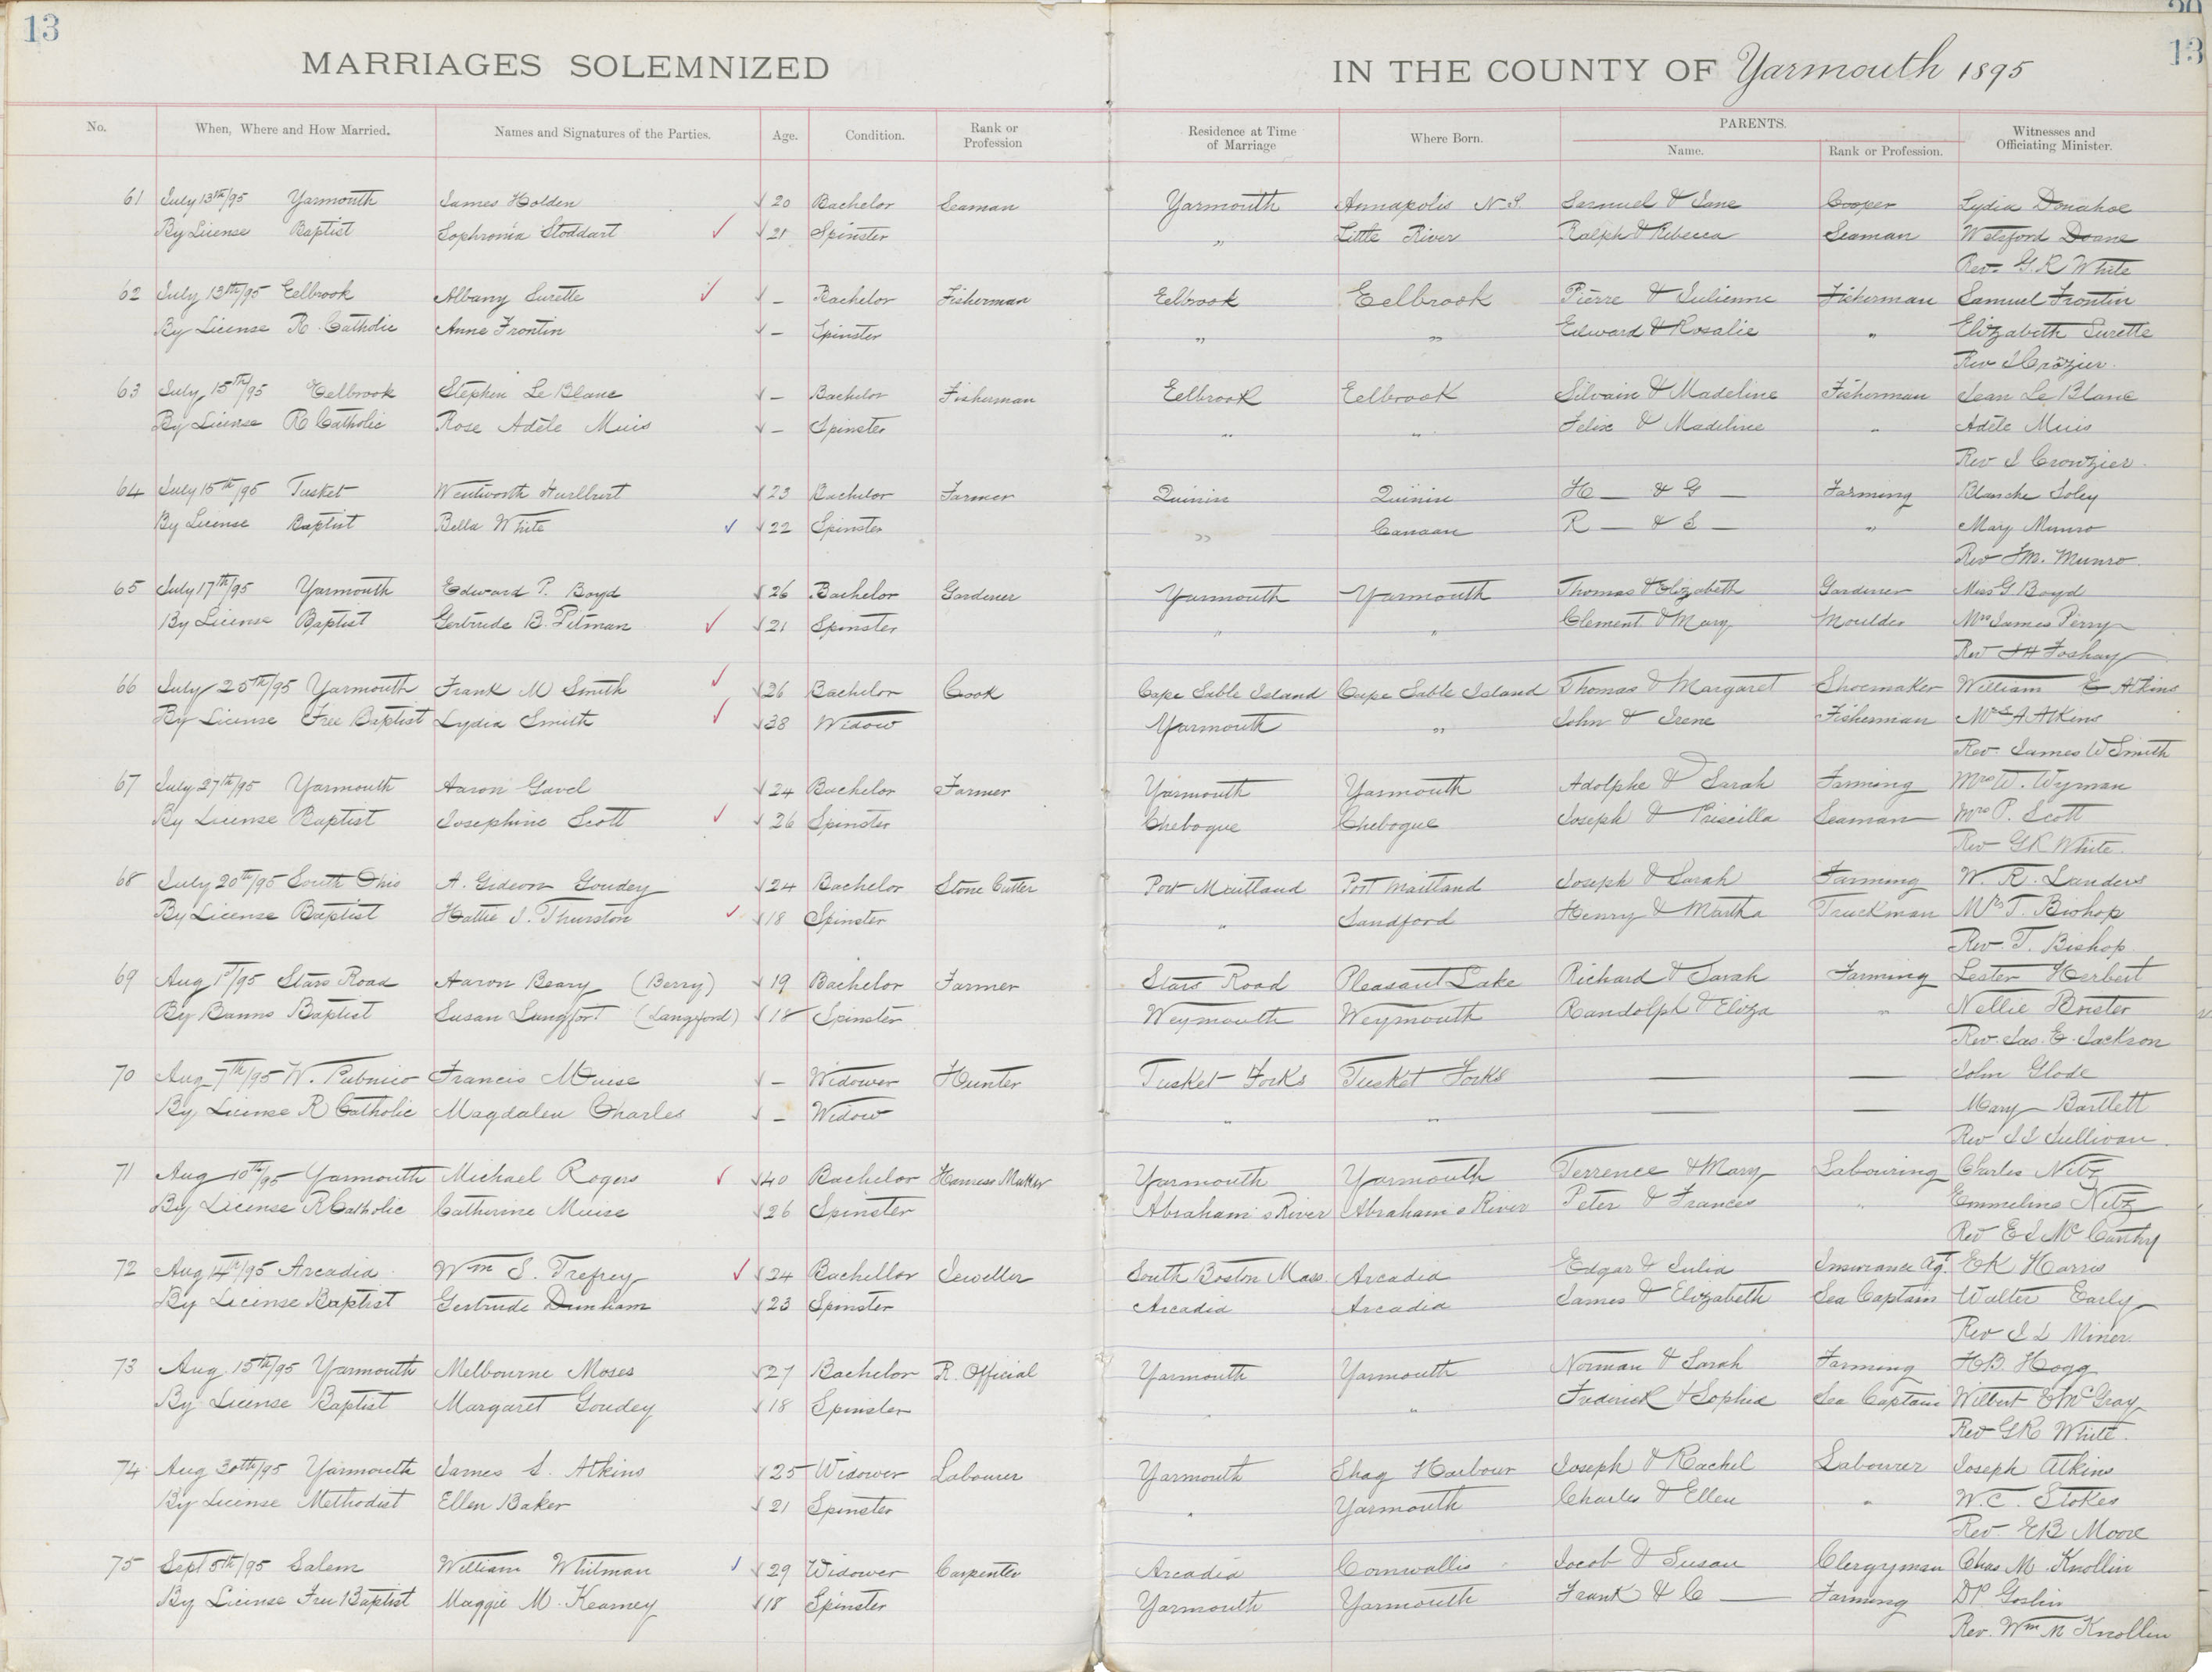 13
20
13
MARRIAGES SOLEMNIZED IN THE COUNTY OF Yarmouth 1895
No. When, Where and How Married. Names and Signatures of the Parties. Age. Condition. Rank or Profession Residence at Time of Marriage Where Born. PARENTS. Name. Rank or Profession. Witnesses and Officiating Minister.
61 July 13th/95 Yarmouth James Holden 20 Bachelor Seaman Yarmouth Annapolis N.S. Samuel & Jane Cooper Lydia Donahoe
By License Baptist Sophronia Stoddart 21 Spinster " Little River Ralph & Rebecca Seaman Welsford Doane
Rev. G.R White
62 July 13th/95 Eelbrook Albany Surette – Bachelor Fisherman Eelbrook Eelbrook Pierre & Julienne Fisherman Samuel Frontin
By License R. Catholic Anne Frontin – Spinster " " Edward & Rosalie " Elizabeth Surette
Rev J Crozier.
63 July 15th/95 Eelbrook Stephen Le Blanc – Bachelor Fisherman Eelbrook Eelbrook Silvain & Madeline Fisherman Jean Le Blanc
By License R Catholic Rose Adèle Muis – Spinster " " Felix & Madeline " Adèle Muis
Rev J Crowzier.
64 July 15th/95 Tusket Wentworth Hurlburt 23 Bachelor Farmer Quinin Quinin H — & G — Farming Blanche Soley
By License Baptist Bella White 22 Spinster " Canaan R — & S — " Mary Munro
Rev J.M. Munro.
65 July 17th/95 Yarmouth Edward P. Boyd 26 Bachelor Gardener Yarmouth Yarmouth Thomas & Elizabeth Gardener Miss G Boyd
By License Baptist Gertrude B. Pitman 21 Spinster " " Clement & Mary Moulder Mrs James Perry
Rev J H Foshay
66 July 25th/95 Yarmouth Frank M Smith 26 Bachelor Cook Cape Sable Island Cape Sable Island Thomas & Margaret Shoemaker William E Atkins
By License Free Baptist Lydia Smith 38 Widow Yarmouth " John & Irene Fisherman Mrs A Atkins
Rev. James W Smith
67 July 27th/95 Yarmouth Aaron Gavel 24 Bachelor Farmer Yarmouth Yarmouth Adolphe & Sarah Farming Mrs W. Wyman
By License Baptist Josephine Scott 26 Spinster Chebogue Chebogue Joseph & Priscilla Seaman Mrs P. Scott
Rev GR White.
68 July 20th/95 South Ohio A. Gideon Goudey 24 Bachelor Stone Cutter Port Maitland Port Maitland Joseph & Sarah Farming W. R. Landers
By License Baptist Hattie J. Thurston 18 Spinster " Sandford Henry & Martha Truckman Mrs T. Bishop
Rev. T. Bishop.
69 Aug 1st/95 Stars Road Aaron Beary (Berry) 19 Bachelor Farmer Stars Road Pleasant Lake Richard & Sarah Farming Lester Herbert
By Banns Baptist Susan Lungfort (Langford) 18 Spinster Weymouth Weymouth Randolph & Eliza " Nellie Brister
Rev. Jas. E. Jackson
70 Aug 7th/95 W. Pubnico Francis Muise – Widower Hunter Tusket Forks Tusket Forks — — John Glode
By License R Catholic Magdalen Charles – Widow " " — — Mary Bartlett
Rev J J Sullivan.
71 Aug 10th/95 Yarmouth Michael Rogers 40 Bachelor Harness Maker Yarmouth Yarmouth Terrence & Mary Labouring Charles Nitz
By License R Catholic Catherine Muise 26 Spinster Abraham's River Abraham's River Peter & Frances " Emmeline Nitz
Rev E J McCarthy
72 Aug 14th/95 Arcadia Wm S. Trefrey 24 Bachellor Jeweller South Boston Mass. Arcadia Edgar & Julia Insurance Agt. EK Harris
By License Baptist Gertrude Dunham 23 Spinster Arcadia Arcadia James & Elizabeth Sea Captain Walter Early
Rev J L Miner
73 Aug. 15th/95 Yarmouth Melbourne Moses 27 Bachelor R. Official Yarmouth Yarmouth Norman & Sarah Farming H.B. Hogg
By License Baptist Margaret Goudey 18 Spinster " " Frederick & Sophia Sea Captain Wilbert E McGray
Rev GR White.
74 Aug 30th/95 Yarmouth James S. Atkins 25 Widower Labourer Yarmouth Shag Harbour Joseph & Rachel Labourer Joseph Atkins
By License Methodist Ellen Baker 21 Spinster " Yarmouth Charles & Ellen " W.C. Stokes
Rev. EB Moore
75 Sept 5th/95 Salem William Whitman 29 Widower Carpenter Arcadia Cornwallis Jacob & Susan Clergyman Chas M. Knollin
By License Free Baptist Maggie M. Kearney 18 Spinster Yarmouth Yarmouth Frank & C — Farming Goslin
Rev. Wm M Knollin